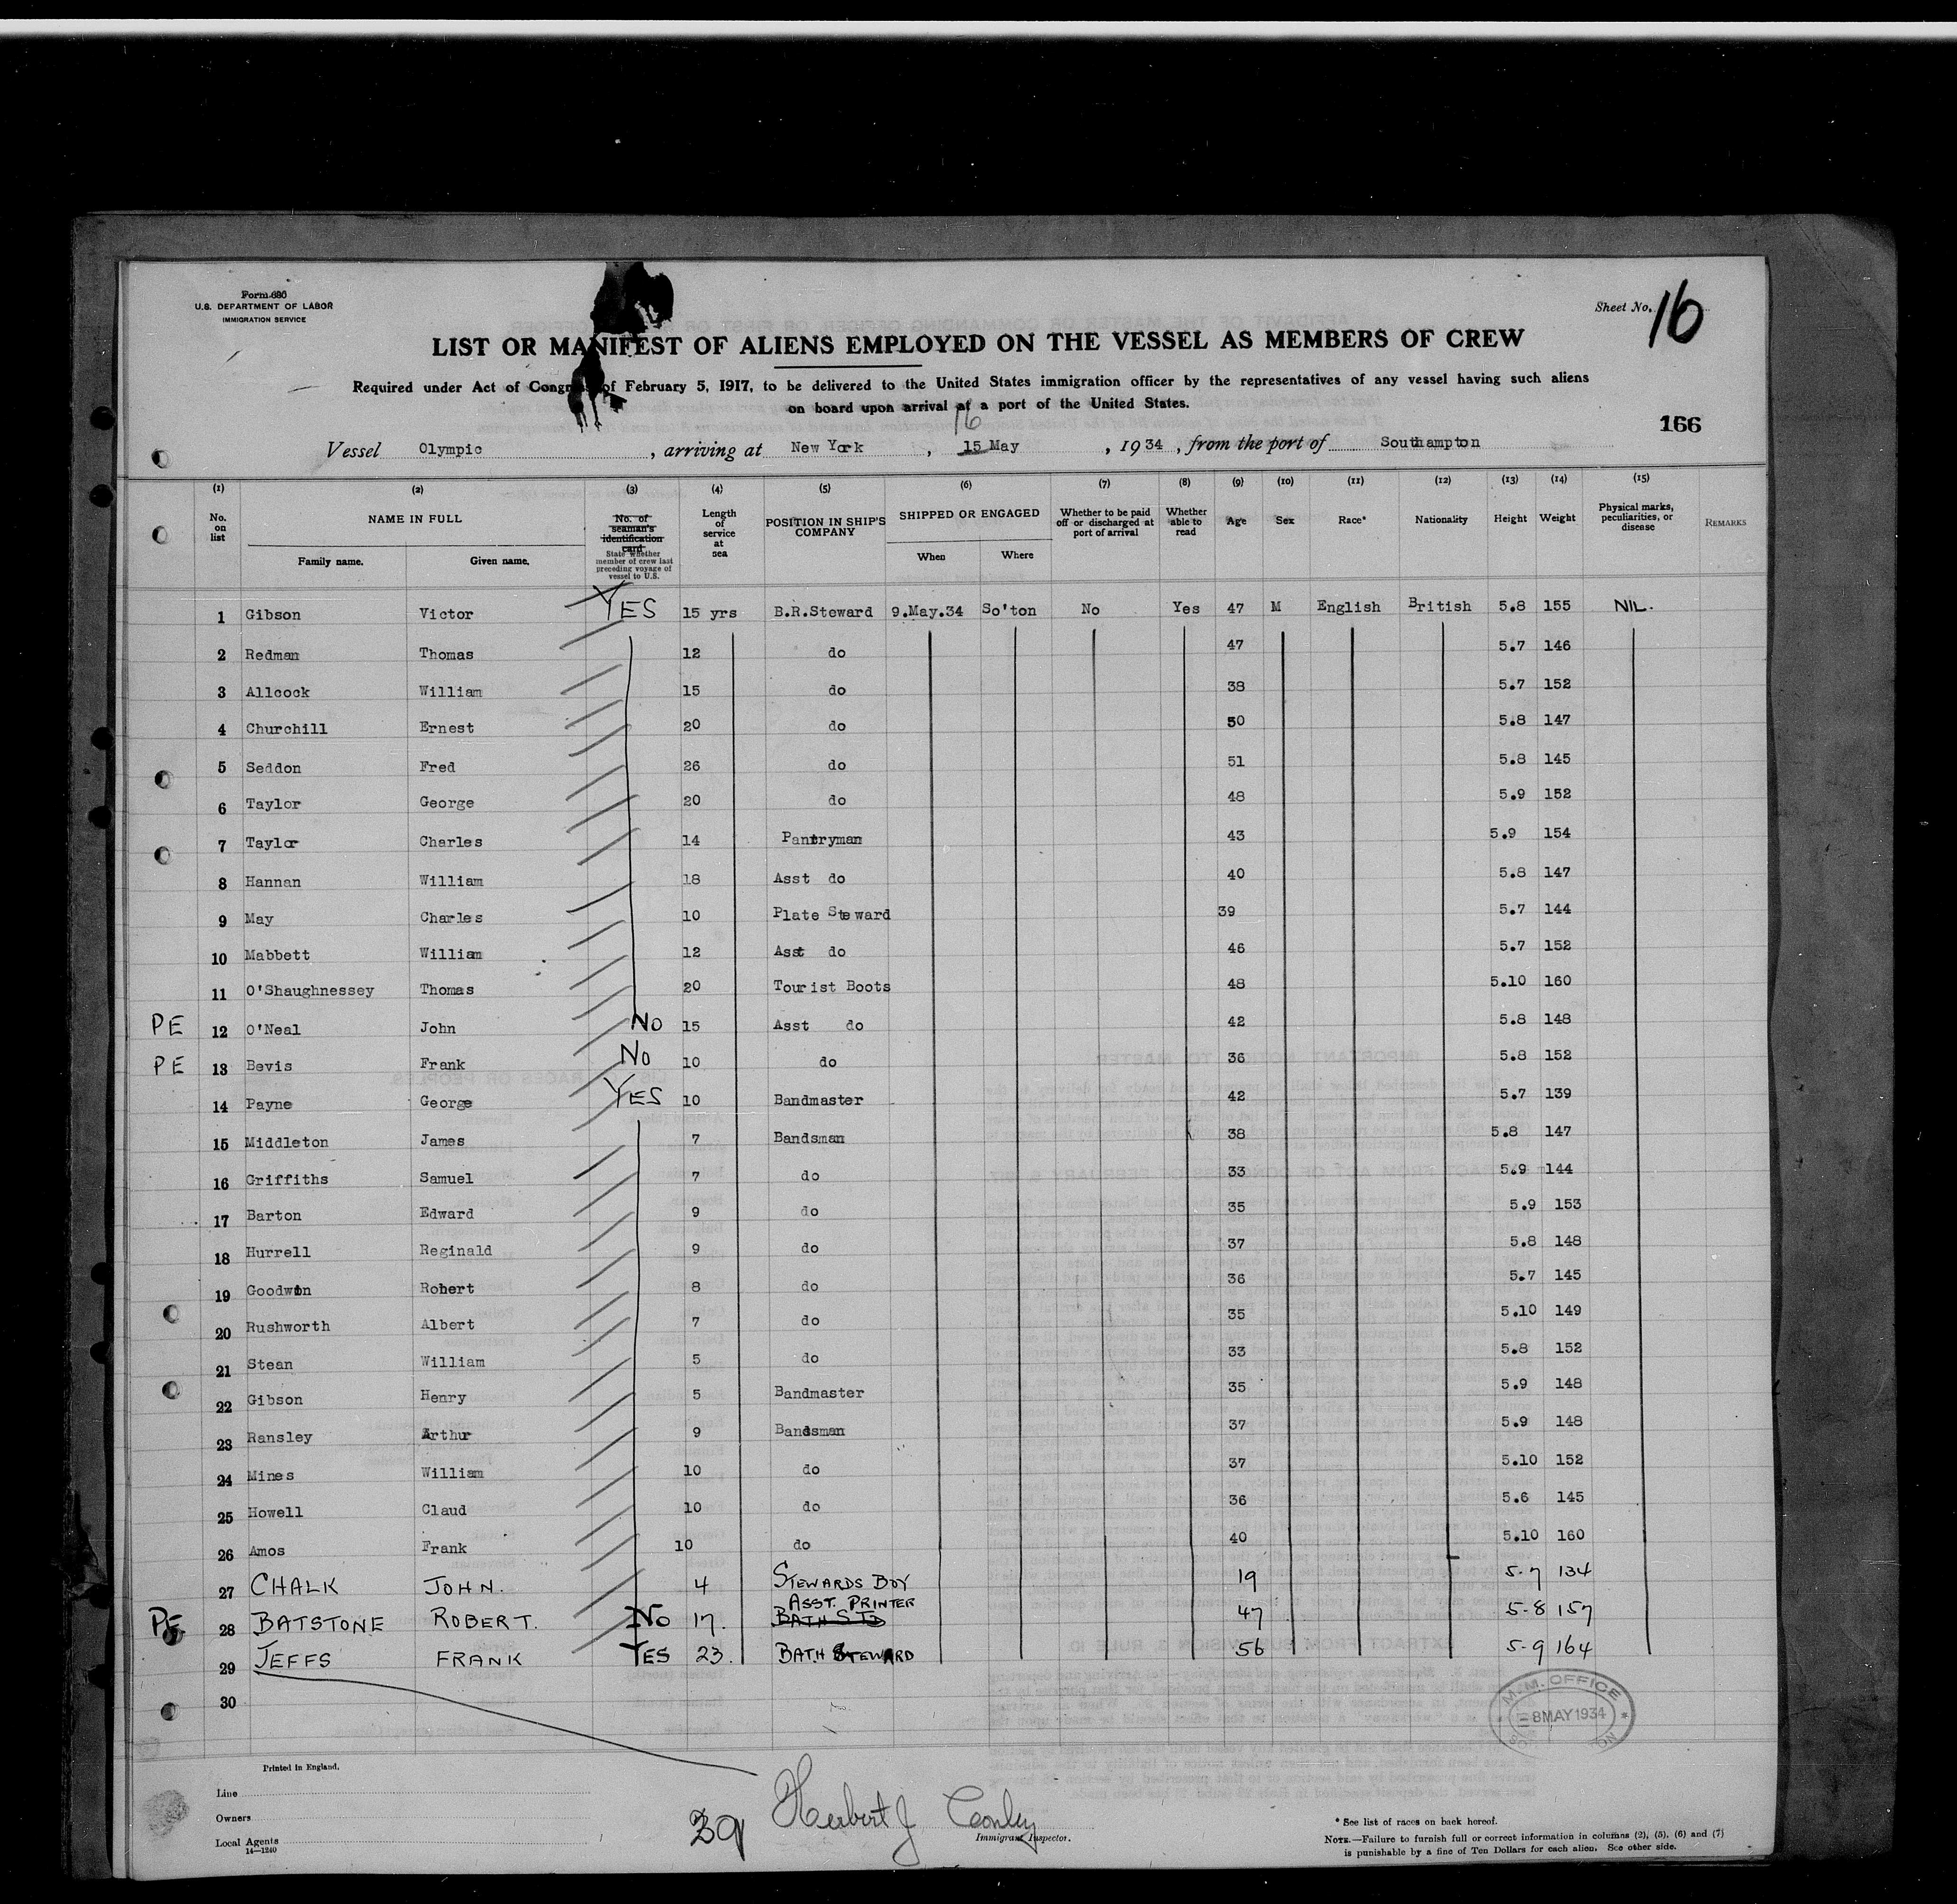 Form 680
U.S. DEPARTMENT OF LABOR
IMMIGRATION SERVICE
Sheet No. 16
LIST OR MANIFEST OF ALIENS EMPLOYED ON THE VESSEL AS MEMBERS OF CREW
Required under Act of Congress of February 5, 1917, to be delivered to the United States immigration officer by the representatives of any vessel having such aliens
on board upon arrival at a port of the United States.
166
16
Vessel Olympic , arriving at New York , 15 May , 1934 , from the port of Southampton
(1) (2) (3) (4) (5) (6) (7) (8) (9) (10) (11) (12) (13) (14) (15)
No. on list NAME IN FULL Family name. Given name. No. of seaman's identification card. State whether member of crew last preceding voyage of vessel to U.S. Length of service at sea POSITION IN SHIP'S COMPANY SHIPPED OR ENGAGED When Where Whether to be paid off or discharged at port of arrival Whether able to read Age Sex Race* Nationality Height Weight Physical marks, peculiarities, or disease REMARKS
1 Gibson Victor YES 15 yrs B.R.Steward 9.May.34 So'ton No Yes 47 M English British 5.8 155 NIL.
2 Redman Thomas 12 do 47 5.7 146
3 Allcock William 15 do 38 5.7 152
4 Churchill Ernest 20 do 50 5.8 147
5 Seddon Fred 26 do 51 5.8 145
6 Taylor George 20 do 48 5.9 152
7 Taylor Charles 14 Pantryman 43 5.9 154
8 Hannan William 18 Asst do 40 5.8 147
9 May Charles 10 Plate Steward 39 5.7 144
10 Mabbett William 12 Asst do 46 5.7 152
11 O'Shaughnessey Thomas 20 Tourist Boots 48 5.10 160
PE 12 O'Neal John No 15 Asst do 42 5.8 148
PE 13 Bevis Frank No 10 do 36 5.8 152
14 Payne George YES 10 Bandmaster 42 5.7 139
15 Middleton James 7 Bandsman 38 5.8 147
16 Griffiths Samuel 7 do 33 5.9 144
17 Barton Edward 9 do 35 5.9 153
18 Hurrell Reginald 9 do 37 5.8 148
19 Goodwin Robert 8 do 36 5.7 145
20 Rushworth Albert 7 do 35 5.10 149
21 Stean William 5 do 33 5.8 152
22 Gibson Henry 5 Bandmaster 35 5.9 148
23 Ransley Arthur 9 Bandsman 37 5.9 148
24 Mines William 10 do 37 5.10 152
25 Howell Claud 10 do 36 5.6 145
26 Amos Frank 10 do 40 5.10 160
27 CHALK JOHN. 4 STEWARDS BOY 19 5-7 134
ASST. PRINTER
PE 28 BATSTONE ROBERT. No 17. BATH STD 47 5-8 157
29 JEFFS FRANK YES 23. BATH STEWARD 56 5-9 164
30
M.M. OFFICE
8 MAY 1934
Printed in England.
Line
Owners
Local Agents
14—1240
39
Herbert J Conley
Immigrant Inspector.
* See list of races on back hereof.
NOTE.—Failure to furnish full or correct information in columns (2), (5), (6) and (7)
is punishable by a fine of Ten Dollars for each alien. See other side.